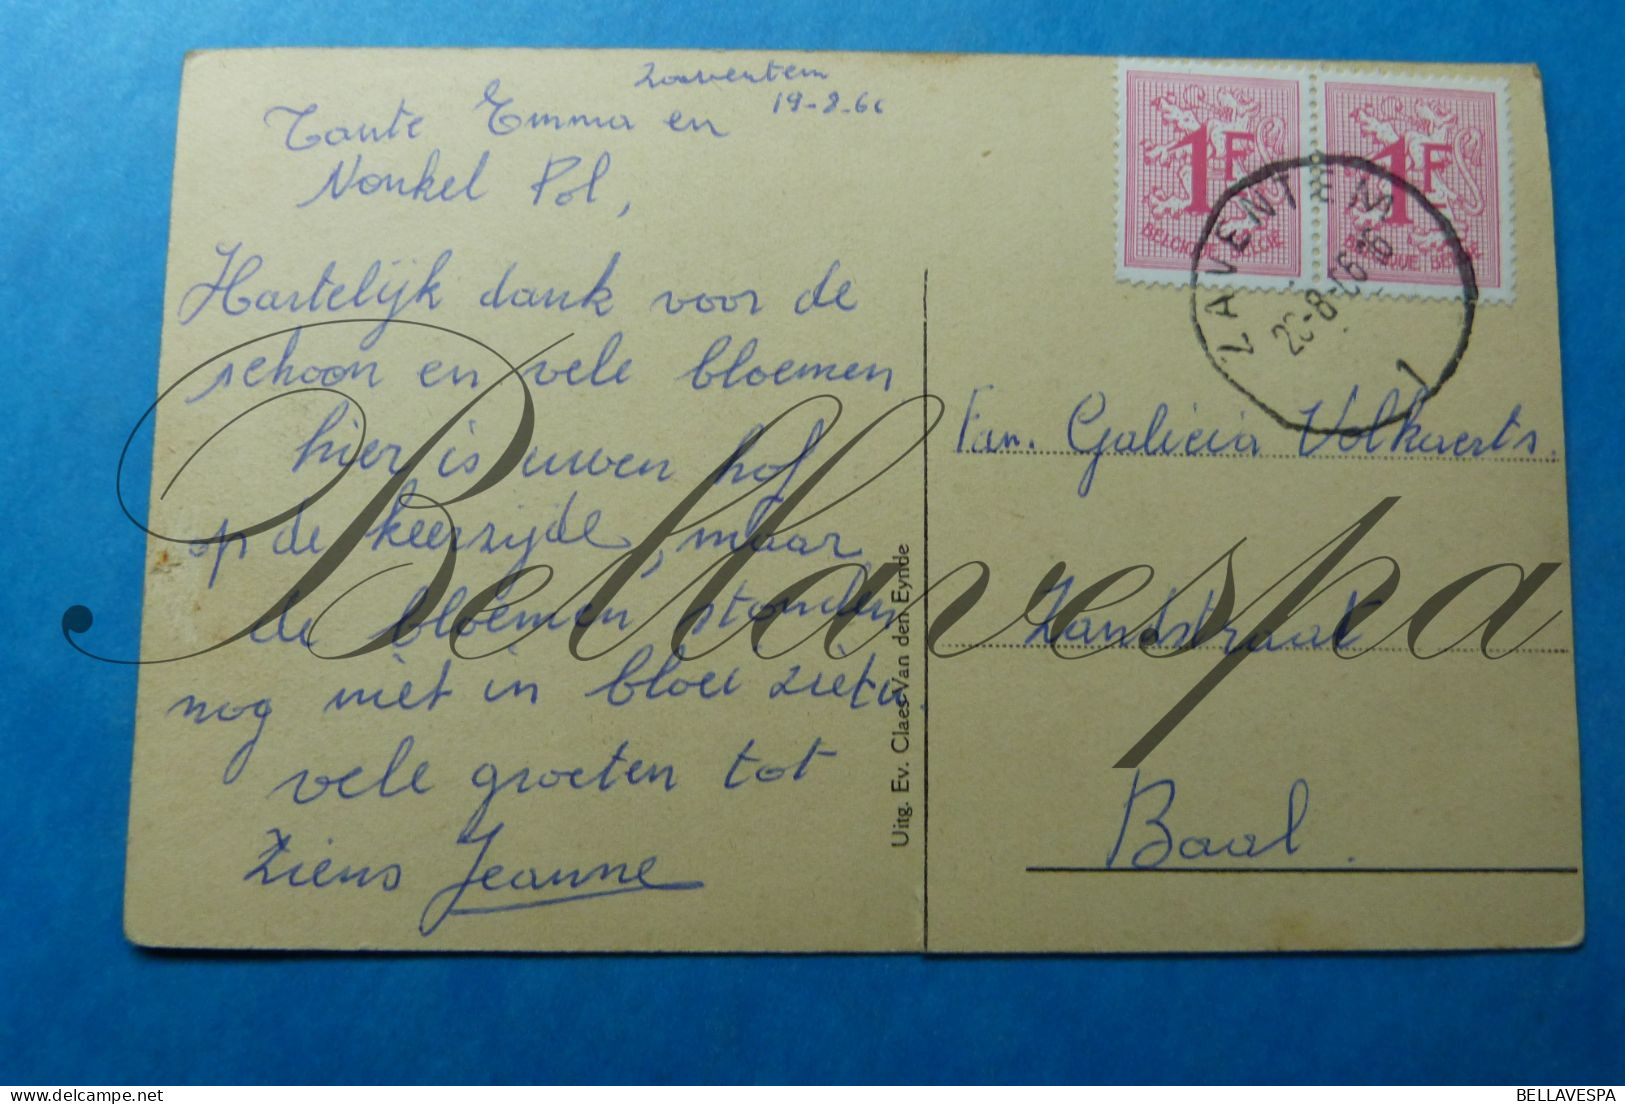 Zaventem
19-8-66
Tante Emma en
Nonkel Pol,
Hartelijk dank voor de
schoon en vele bloemen
hier is uwen hof
op de keerzijde, maar
de bloemen stonden
nog niet in bloei ziet u.
vele groeten tot
Ziens Jeanne
Uitg. Ev. Claes-Van den Eynde
1F 1F
BELGIQUE BELGIË BELGIQUE BELGIË
ZAVENTEM
1
Fam. Galicia Volkaerts.
Zandstraat
Baal.
Bellavespa
BELLAVESPA